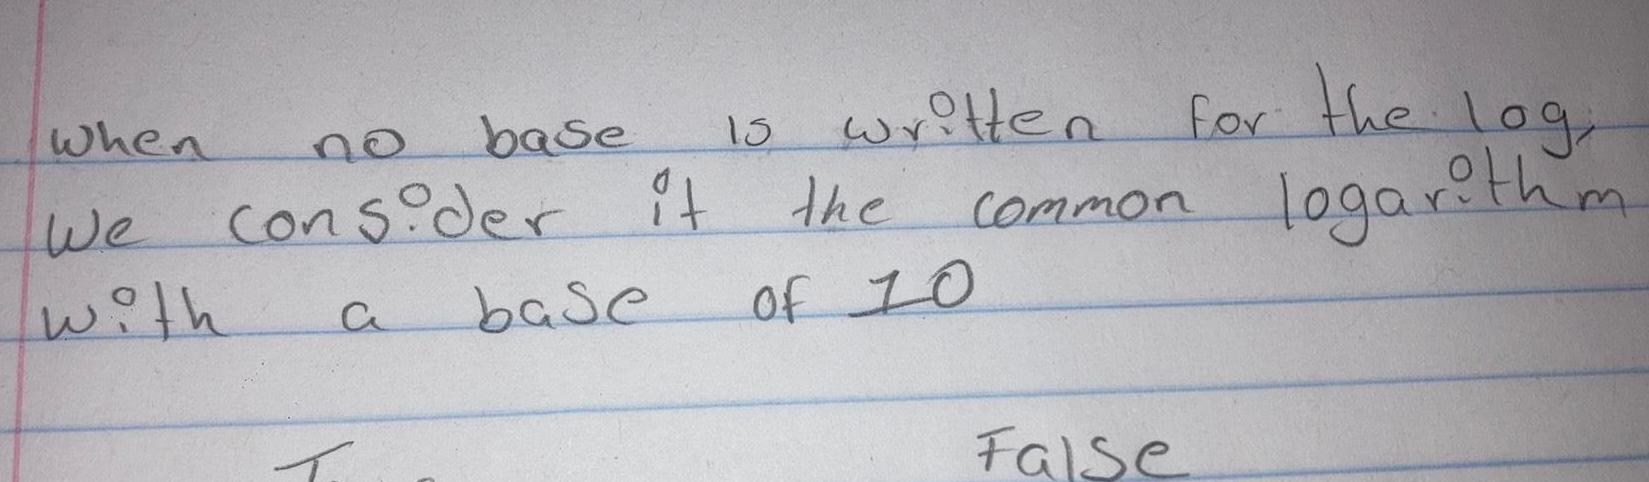 when no base is written for the log,
we consider it the common logarithm
with a base of 10
False